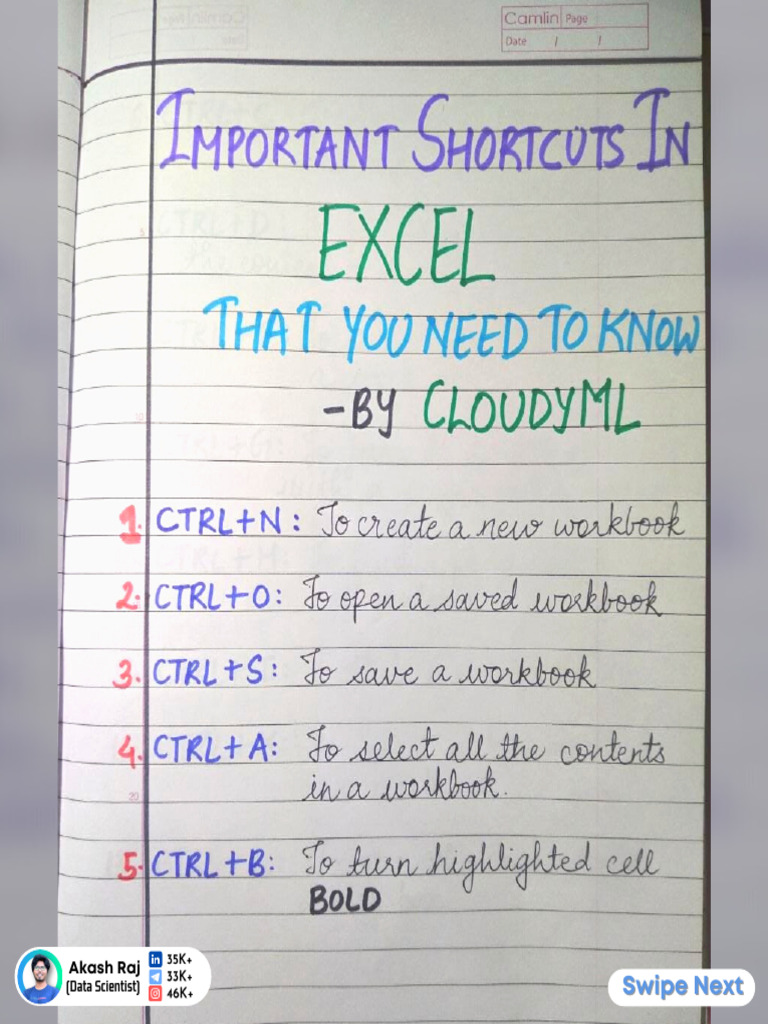 Camlin Page
Date / /
IMPORTANT SHORTCUTS IN
EXCEL
THAT YOU NEED TO KNOW
-BY CLOUDYML
1. CTRL+N: To create a new workbook
2. CTRL+O: To open a saved workbook
3. CTRL+S: To save a workbook
4. CTRL+A: To select all the contents
in a workbook.
20
5. CTRL+B: To turn highlighted cell
BOLD
Akash Raj
(Data Scientist)
in 35K+
33K+
46K+
Swipe Next